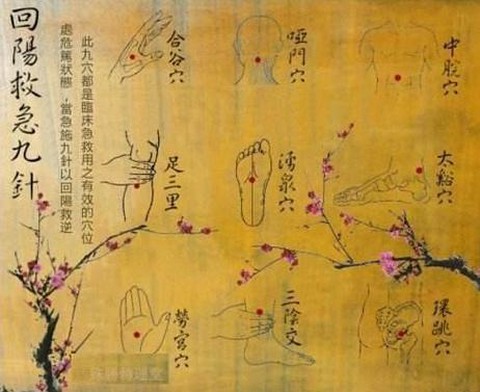 回陽救急九針
此九穴都是臨床急救用之有效的穴位
處危篤狀態，當急施九針以回陽救逆
合谷穴
啞門穴
中脘穴
足三里
湧泉穴
太谿穴
勞宮穴
三陰交
環跳穴